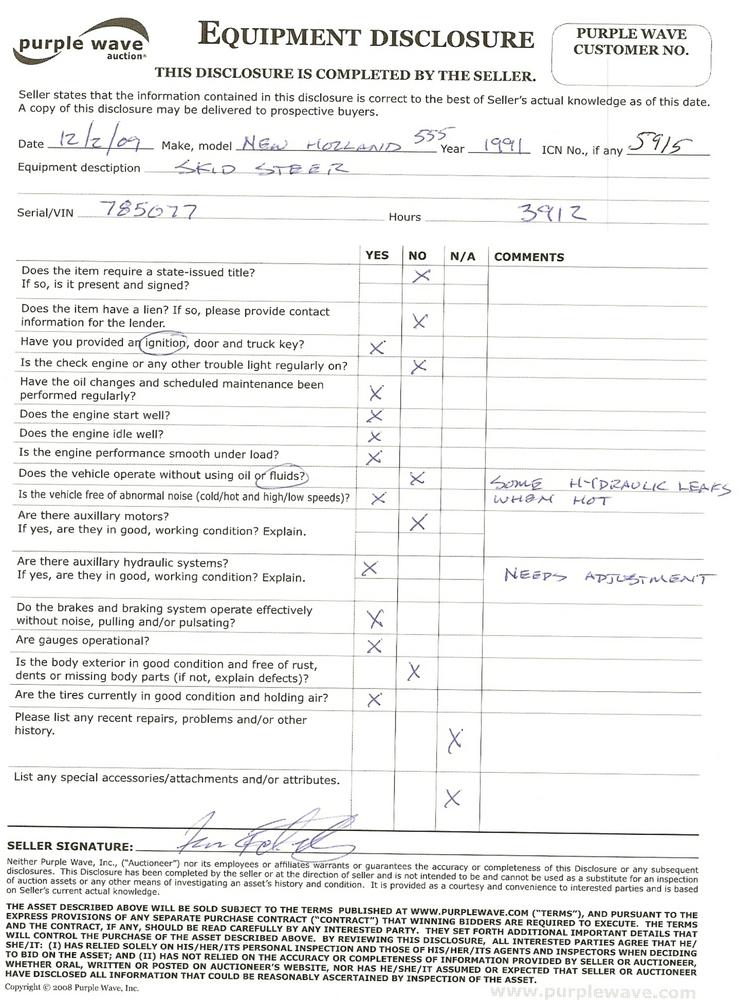 purple wave
auction®
EQUIPMENT DISCLOSURE
PURPLE WAVE
CUSTOMER NO.
THIS DISCLOSURE IS COMPLETED BY THE SELLER.
Seller states that the information contained in this disclosure is correct to the best of Seller's actual knowledge as of this date.
A copy of this disclosure may be delivered to prospective buyers.
Date 12/2/09 Make, model NEW HOLLAND 555 Year 1991 ICN No., if any 5915
Equipment desctiption SKID STEER
Serial/VIN 785077 Hours 3912
YES NO N/A COMMENTS
Does the item require a state-issued title? X
If so, is it present and signed?
Does the item have a lien? If so, please provide contact
information for the lender. X
Have you provided an ignition, door and truck key? X
Is the check engine or any other trouble light regularly on? X
Have the oil changes and scheduled maintenance been
performed regularly? X
Does the engine start well? X
Does the engine idle well? X
Is the engine performance smooth under load? X
Does the vehicle operate without using oil or fluids? X SOME HYDRAULIC LEAKS
Is the vehicle free of abnormal noise (cold/hot and high/low speeds)? X WHEN HOT
Are there auxillary motors? X
If yes, are they in good, working condition? Explain.
Are there auxillary hydraulic systems? X
If yes, are they in good, working condition? Explain. NEEDS ADJUSTMENT
Do the brakes and braking system operate effectively
without noise, pulling and/or pulsating? X
Are gauges operational? X
Is the body exterior in good condition and free of rust,
dents or missing body parts (if not, explain defects)? X
Are the tires currently in good condition and holding air? X
Please list any recent repairs, problems and/or other
history. X
List any special accessories/attachments and/or attributes.
X
SELLER SIGNATURE:
Neither Purple Wave, Inc., ("Auctioneer") nor its employees or affiliates warrants or guarantees the accuracy or completeness of this Disclosure or any subsequent
disclosures. This Disclosure has been completed by the seller or at the direction of seller and is not intended to be and cannot be used as a substitute for an inspection
of auction assets or any other means of investigating an asset's history and condition. It is provided as a courtesy and convenience to interested parties and is based
on Seller's current actual knowledge.
THE ASSET DESCRIBED ABOVE WILL BE SOLD SUBJECT TO THE TERMS PUBLISHED AT WWW.PURPLEWAVE.COM ("TERMS"), AND PURSUANT TO THE
EXPRESS PROVISIONS OF ANY SEPARATE PURCHASE CONTRACT ("CONTRACT") THAT WINNING BIDDERS ARE REQUIRED TO EXECUTE. THE TERMS
AND THE CONTRACT, IF ANY, SHOULD BE READ CAREFULLY BY ANY INTERESTED PARTY. THEY SET FORTH ADDITIONAL IMPORTANT DETAILS THAT
WILL CONTROL THE PURCHASE OF THE ASSET DESCRIBED ABOVE. BY REVIEWING THIS DISCLOSURE, ALL INTERESTED PARTIES AGREE THAT HE/
SHE/IT: (I) HAS RELIED SOLELY ON HIS/HER/ITS PERSONAL INSPECTION AND THOSE OF HIS/HER/ITS AGENTS AND INSPECTORS WHEN DECIDING
TO BID ON THE ASSET; AND (II) HAS NOT RELIED ON THE ACCURACY OR COMPLETENESS OF INFORMATION PROVIDED BY SELLER OR AUCTIONEER,
WHETHER ORAL, WRITTEN OR POSTED ON AUCTIONEER'S WEBSITE, NOR HAS HE/SHE/IT ASSUMED OR EXPECTED THAT SELLER OR AUCTIONEER
HAVE DISCLOSED ALL INFORMATION THAT COULD BE REASONABLY ASCERTAINED BY INSPECTION OF THE ASSET.
Copyright © 2008 Purple Wave, Inc.
www.purplewave.com